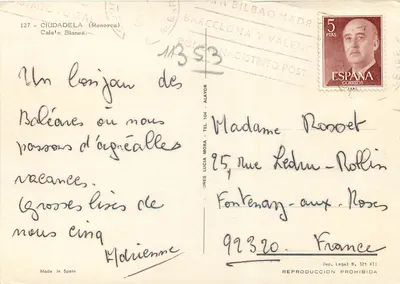 127 - CIUDADELA (Menorca)
Cala'n Blanes
BILBAO MADRID
BARCELONA Y VALEN
DISTRITO POST
5
PTAS
ESPAÑA
CORREOS
11353
Un bonjour des
Baléares où nous
passons d'agréables
vacances.
Grosses bises de
nous cinq
Adrienne
Madame Rosset
25, rue Ledru-Rollin
Fontenay-aux-Roses
92320. France
LUCIA MORA - TEL. 104 - ALAYOR
Made in Spain
Dep. Legal B.
REPRODUCCION PROHIBIDA